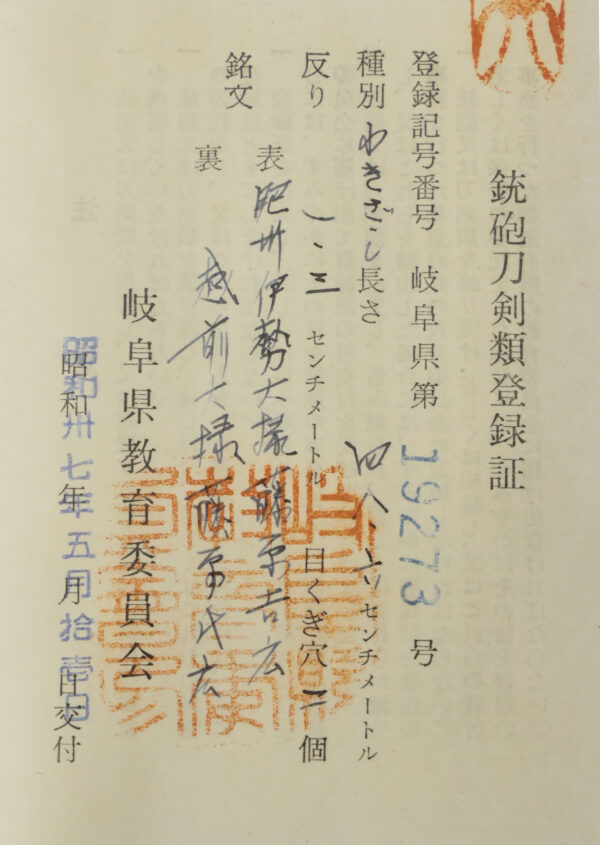 銃砲刀剣類登録証
登録記号番号 岐阜県第 19273 号
種別 わきざし 長さ 四八、六 センチメートル
反り 一、三 センチメートル 目くぎ穴 二 個
銘文 表 肥州伊勢大掾藤原吉広
裏 越前大掾藤原 広
岐阜県教育委員会
昭和 年 月 日交付
昭和卅七年五月拾壱日